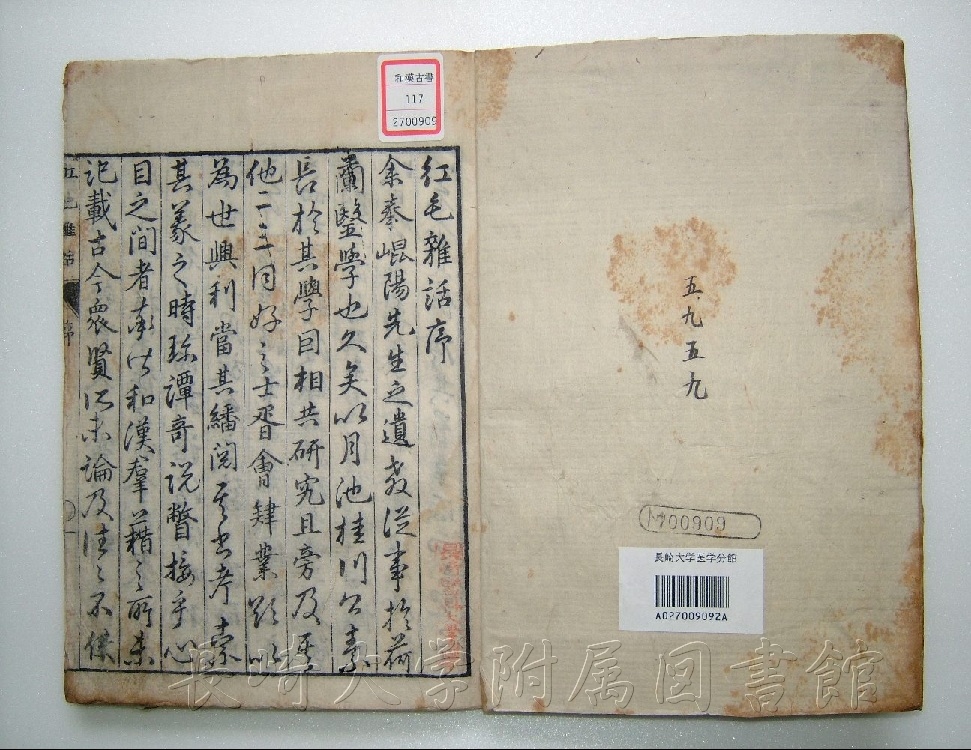 五九五九
2700909
長崎大学医学分館
A02700909ZA
和漢古書
117
2700909
紅毛雜話序
余奉崐陽先生之遺教従事於荷
蘭毉学也久矣以月池桂川公素
長於其學因相共研究且旁及
他二三同好之士胥會肄業
為世興利當其繙閲考索
其義之時珍譚奇説瞥接乎心
目之間者和漢羣藉之所未
記載古今衆賢所未論及
紅毛雜話
序
長崎大学附属図書館